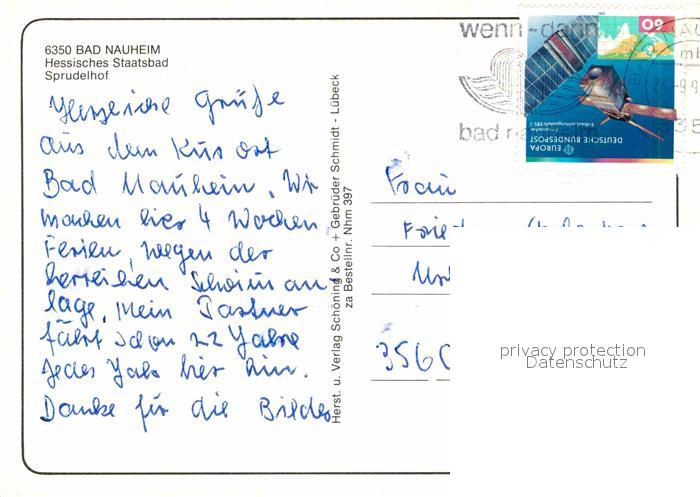 6350 BAD NAUHEIM
Hessisches Staatsbad
Sprudelhof
Herzliche Grüße
aus dem Kurort
Bad Nauheim. Wir
machen hier 4 Wochen
Ferien, wegen der
herrlichen Schwimman
lage. Mein Partner
fährt schon 22 Jahre
jedes Jahr hier hin.
Danke für die Bilder
Herst. u. Verlag Schöning & Co + Gebrüder Schmidt - Lübeck
zu Bestellnr. Nhm 397
wenn - dann
bad nauheim
60
EUROPA
DEUTSCHE BUNDESPOST
Frau
3560
privacy protection
Datenschutz